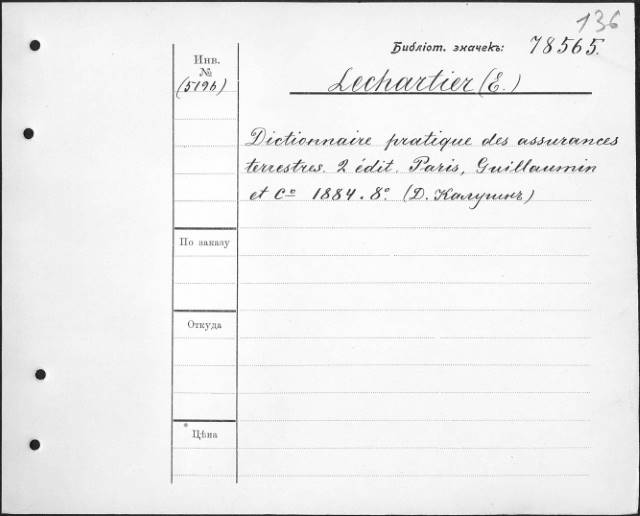 136
Библіот. значекъ: 78565.
Инв.
№
(5196)
Lechartier (E.)
Dictionnaire pratique des assurances
terrestres. 2 édit. Paris, Guillaumin
et Cº 1884. 8º. (Д. Калушинъ)
По заказу
Откуда
Цѣна